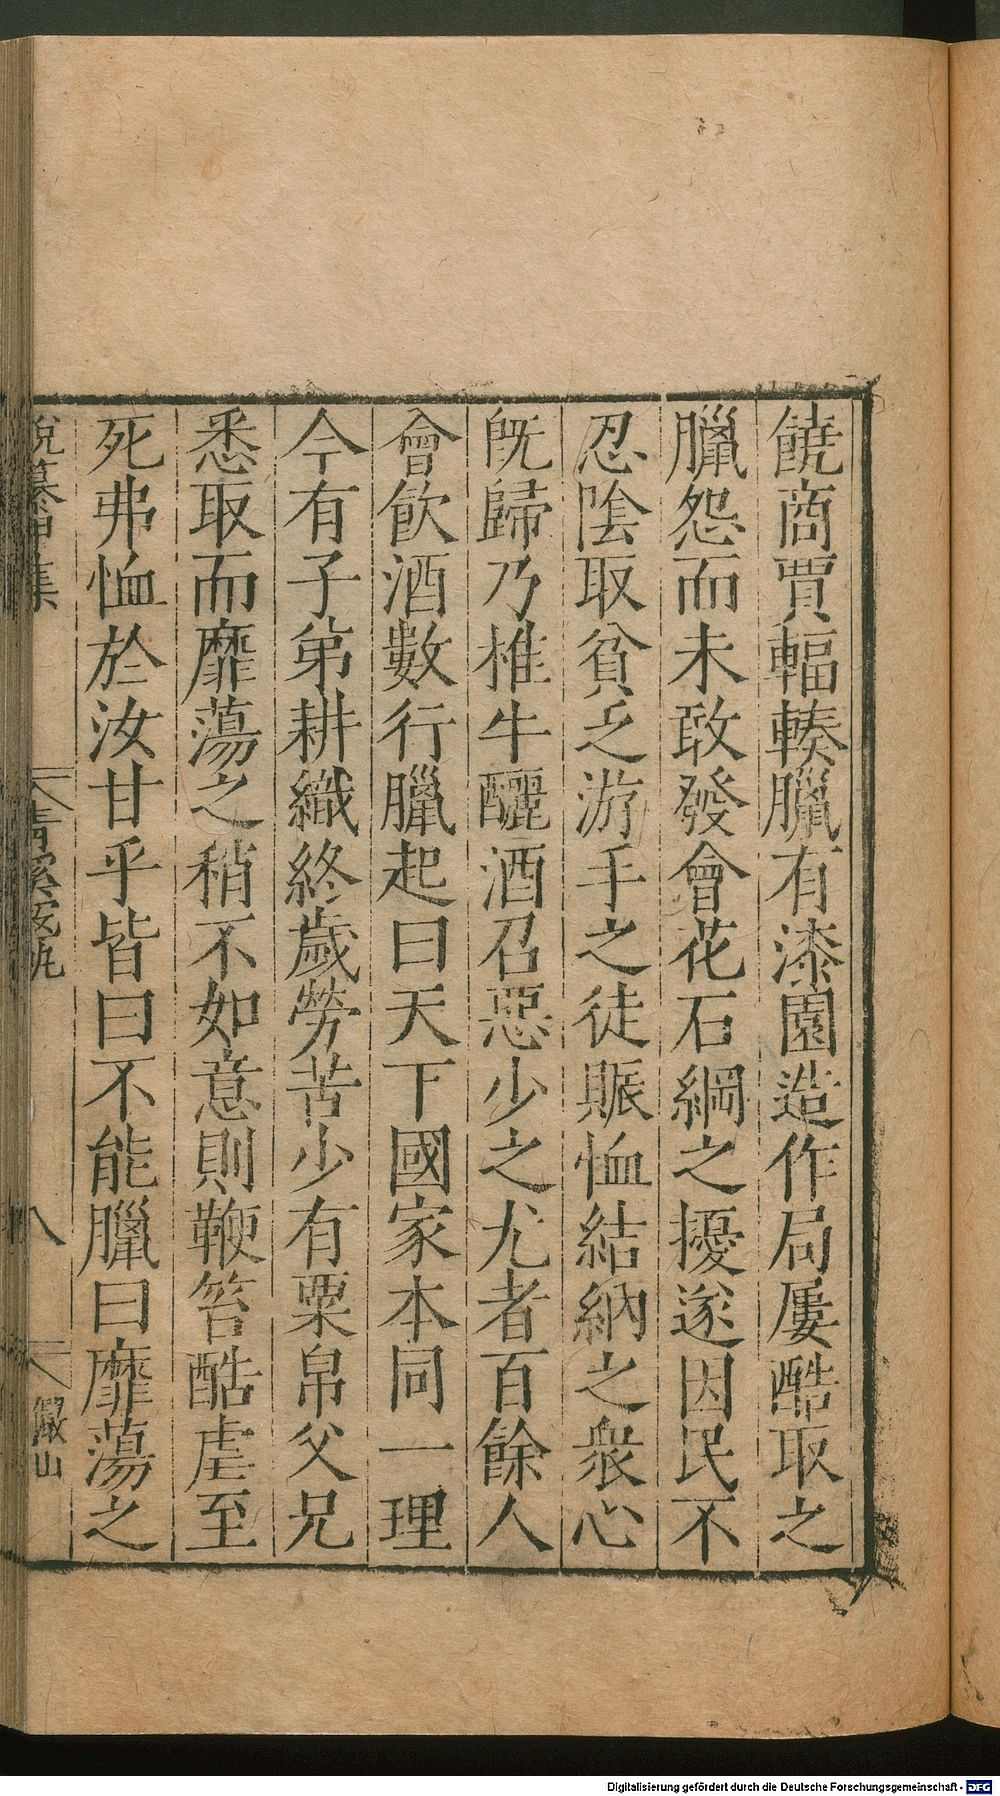 饒商賈輻輳臘有漆園造作局屢酷取之
臘怨而未敢發會花石綱之擾遂因民不
忍陰取貧乏游手之徒賑恤結納之衆心
旣歸乃椎牛釃酒召惡少之尤者百餘人
會飲酒數行臘起曰天下國家本同一理
今有子弟耕織終歲勞苦少有粟帛父兄
悉取而靡蕩之稍不如意則鞭笞酷虐至
死弗恤於汝甘乎皆曰不能臘曰靡蕩之
說纂甲集
青溪宼軌
八
儼山
Digitalisierung gefördert durch die Deutsche Forschungsgemeinschaft - DFG